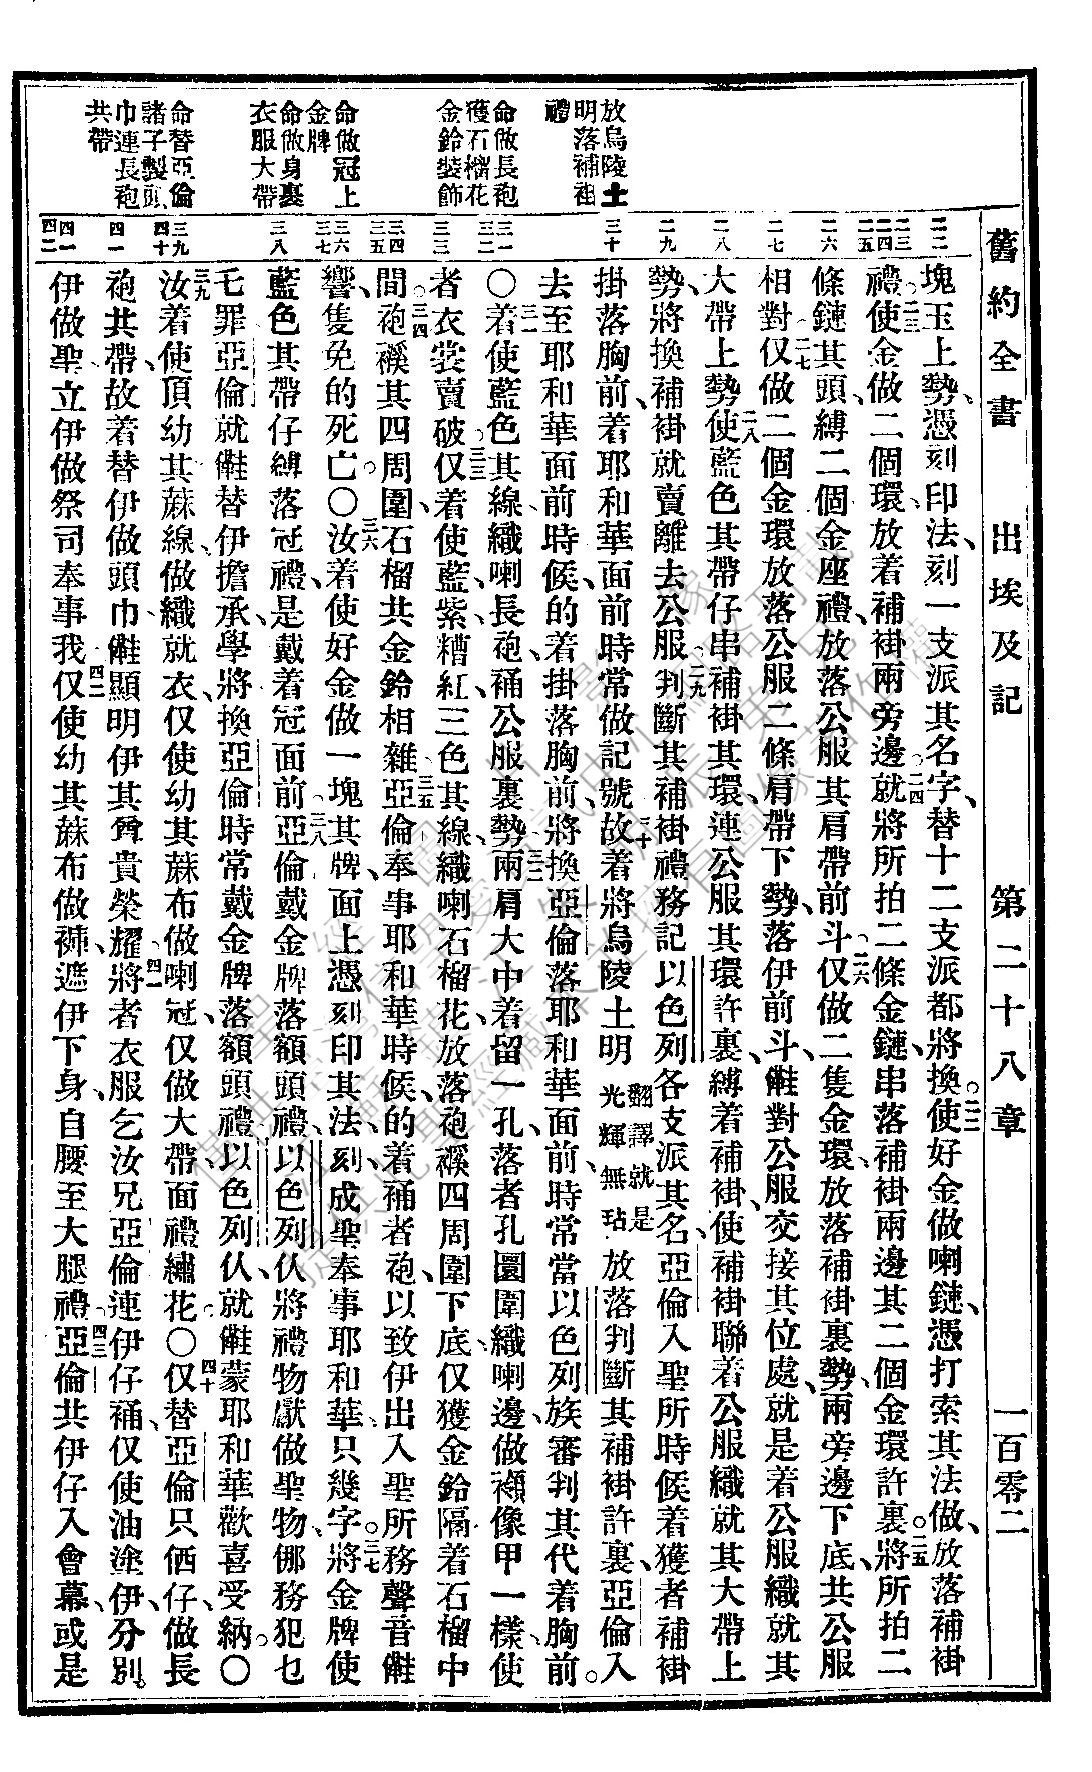 舊約全書　出埃及記　第二十八章　一百零二
放烏陵土
明落補褂
禮
命做長袍
穫石榴花
金鈴裝飾
命做冠上
金牌
命做身裏
衣服大帶
命替亞倫
諸子製頭
巾連長袍
共帶
二二
二三
二四
二五
二六
二七
二八
二九
三十
三一
三二
三三
三四
三五
三六
三七
三八
三九
四十
四一
四一
四二
塊玉上勢、憑刻印法、刻一支派其名字、替十二支派都將換。二二使好金做喇鏈、憑打索其法做、放落補褂
禮。二三使金做二個環、放着補褂兩旁邊。二四就將所拍二條金鏈、串落補褂兩邊其二個金環許裏。二五將所拍二
條鏈其頭、縛二個金座禮、放落公服其肩帶前斗。二六仅做二隻金環、放落補褂裏勢、兩旁邊下底、共公服
相對。二七仅做二個金環、放落公服二條肩帶下勢、落伊前斗、對公服交接其位處、就是着公服織就其
大帶上勢。二八使藍色其帶仔、串補褂其環、連公服其環許裏、縛着補褂、使補褂聯着公服織就其大帶上
勢、將換補褂就賣離去公服。二九判斷其補褂禮、務記以色列各支派其名、亞倫入聖所時候、着穫者補褂
掛落胸前、着耶和華面前時常做記號。三十故着將烏陵土明翻譯就是光輝無玷放落判斷其補褂許裏、亞倫入
去至耶和華面前時候、的着掛落胸前、將換亞倫落耶和華面前、時常當以色列族審判其代着胸前。
〇三一着使藍色其線織喇長袍、䘼公服裏勢。三二兩肩大中着留一孔、落者孔圜圍、織喇邊、做䙔像甲一樣、使
者衣裳賣破。三三仅着使藍、紫、糟紅、三色其線、織喇石榴花、放落袍䙓四周圍下底、仅獲金鈴隔着石榴中
間。三四袍䙓其四周圍、石榴共金鈴相雜。三五亞倫奉事耶和華時候、的着䘼者袍、以致伊出入聖所、務聲音
響、隻免的死亡。〇三六汝着使好金做一塊其牌、面上憑刻印其法、刻成聖奉事耶和華只幾字。三七將金牌使
藍色其帶仔縛落冠禮、是戴着冠面前。三八亞倫戴金牌落額頭禮、以色列仈將禮物獻做聖物、㑚務犯乜
乇罪、亞倫就替伊擔承、學將換亞倫時常戴金牌落額頭禮、以色列仈、就蒙耶和華歡喜受納。〇
三九汝着使頂幼其蔴線、做織就衣、仅使幼其蔴布做喇冠、仅做大帶面禮繡花。〇四十仅替亞倫只伓仔、做長
袍共帶、故着替伊做頭巾、顯明伊其尊貴榮耀。四一將者衣服乞汝兄亞倫連伊仔䘼、仅使油塗伊、分別
伊做聖、立伊做祭司奉事我。四二仅使幼其蔴布做褲、遮伊下身、自腰至大腿禮。四三亞倫共伊仔入會幕、或是